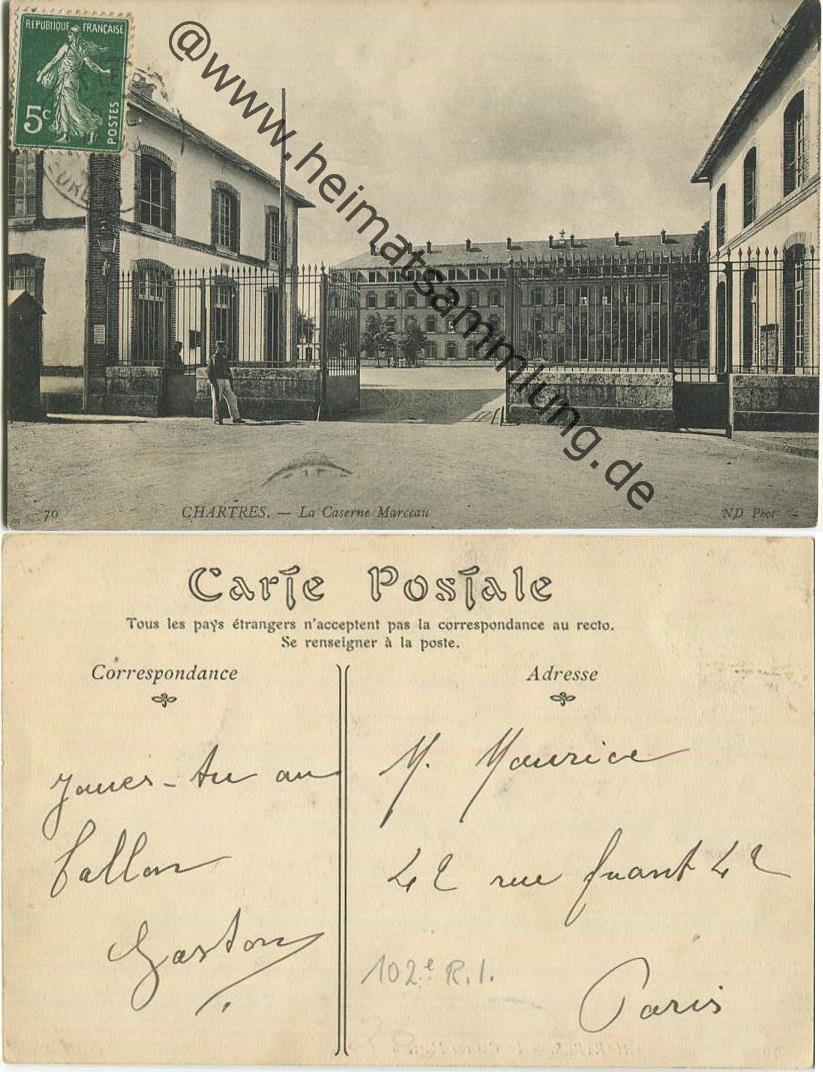 REPUBLIQUE FRANÇAISE
5c
POSTES
@www.heimatsammlung.de
70
CHARTRES. — La Caserne Marceau
ND Phot
Carte Postale
Tous les pays étrangers n'acceptent pas la correspondance au recto.
Se renseigner à la poste.
Correspondance
Adresse
Joues-tu au
ballon
Gaston
M. Maurice
42 rue 42
Paris
102e R.I.